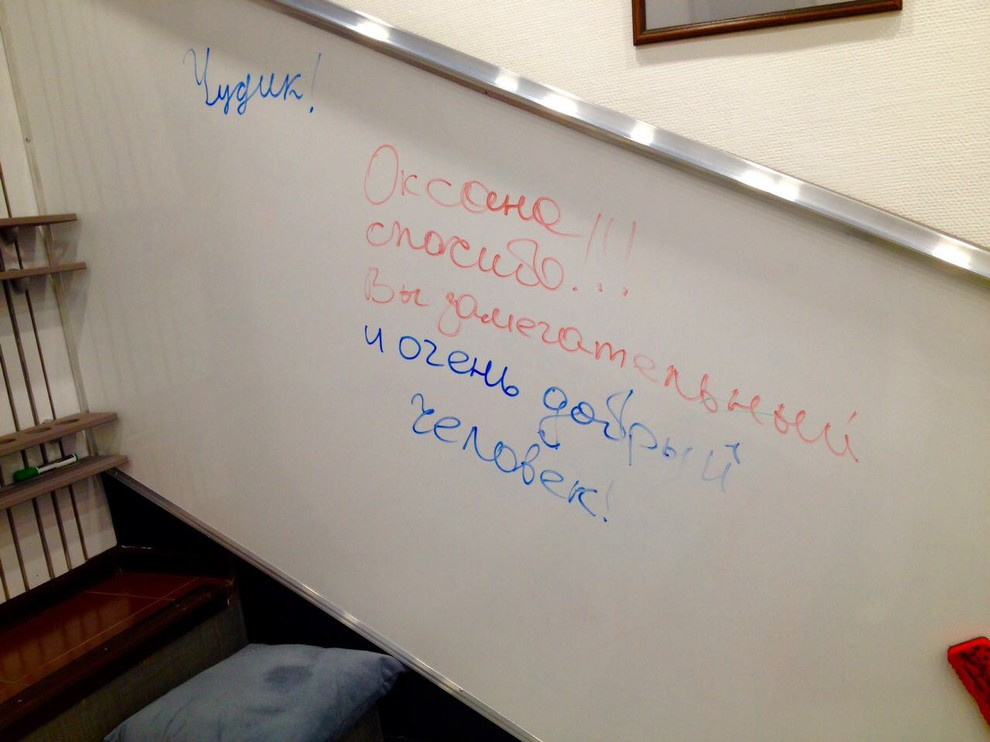 Чудик!
Оксана!!!
спасибо...
Вы замечательный
и очень добрый
человек!